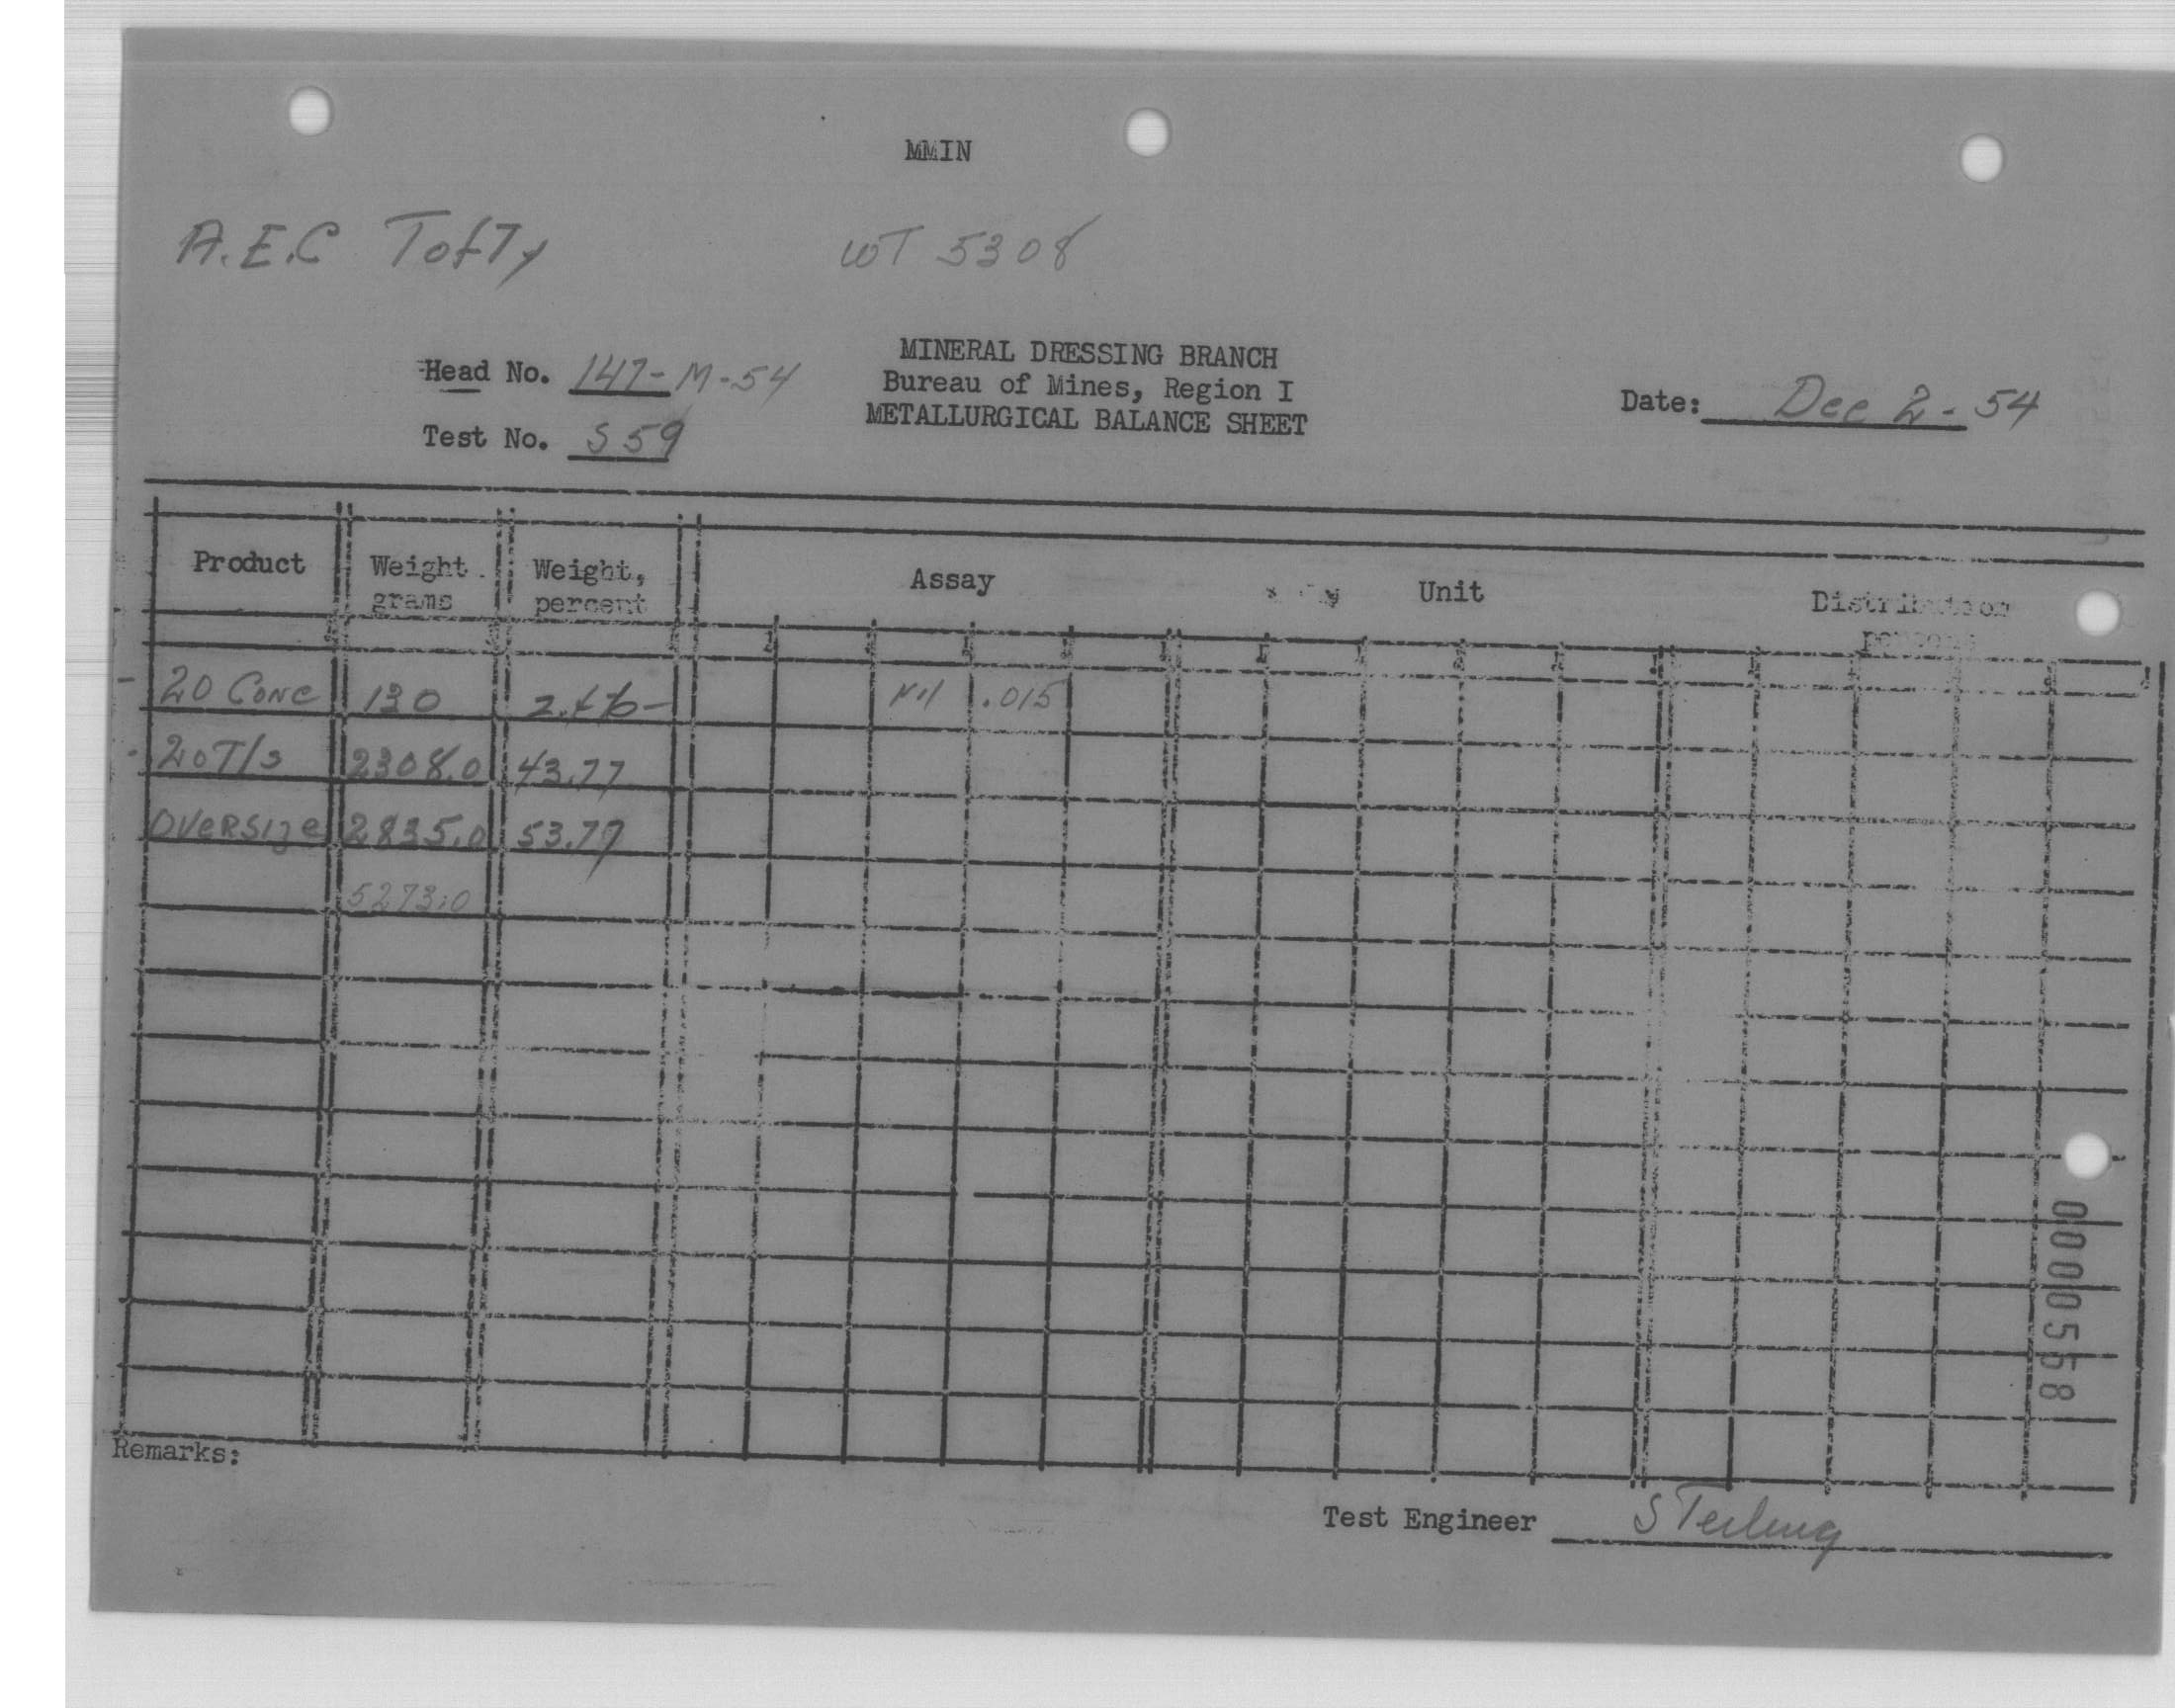 MMIN
A.E.C Tofty WT 5308
MINERAL DRESSING BRANCH
Head No. 147-M-54 Bureau of Mines, Region I Date: Dec 2-54
METALLURGICAL BALANCE SHEET
Test No. S59
Product Weight grams Weight, percent Assay Unit Distribution percent
-20 Conc 130 2.46 Nil .015
-20 T/s 2308.0 43.77
Oversize 2835.0 53.77
5273.0
Remarks:
Test Engineer Sterling
0000558